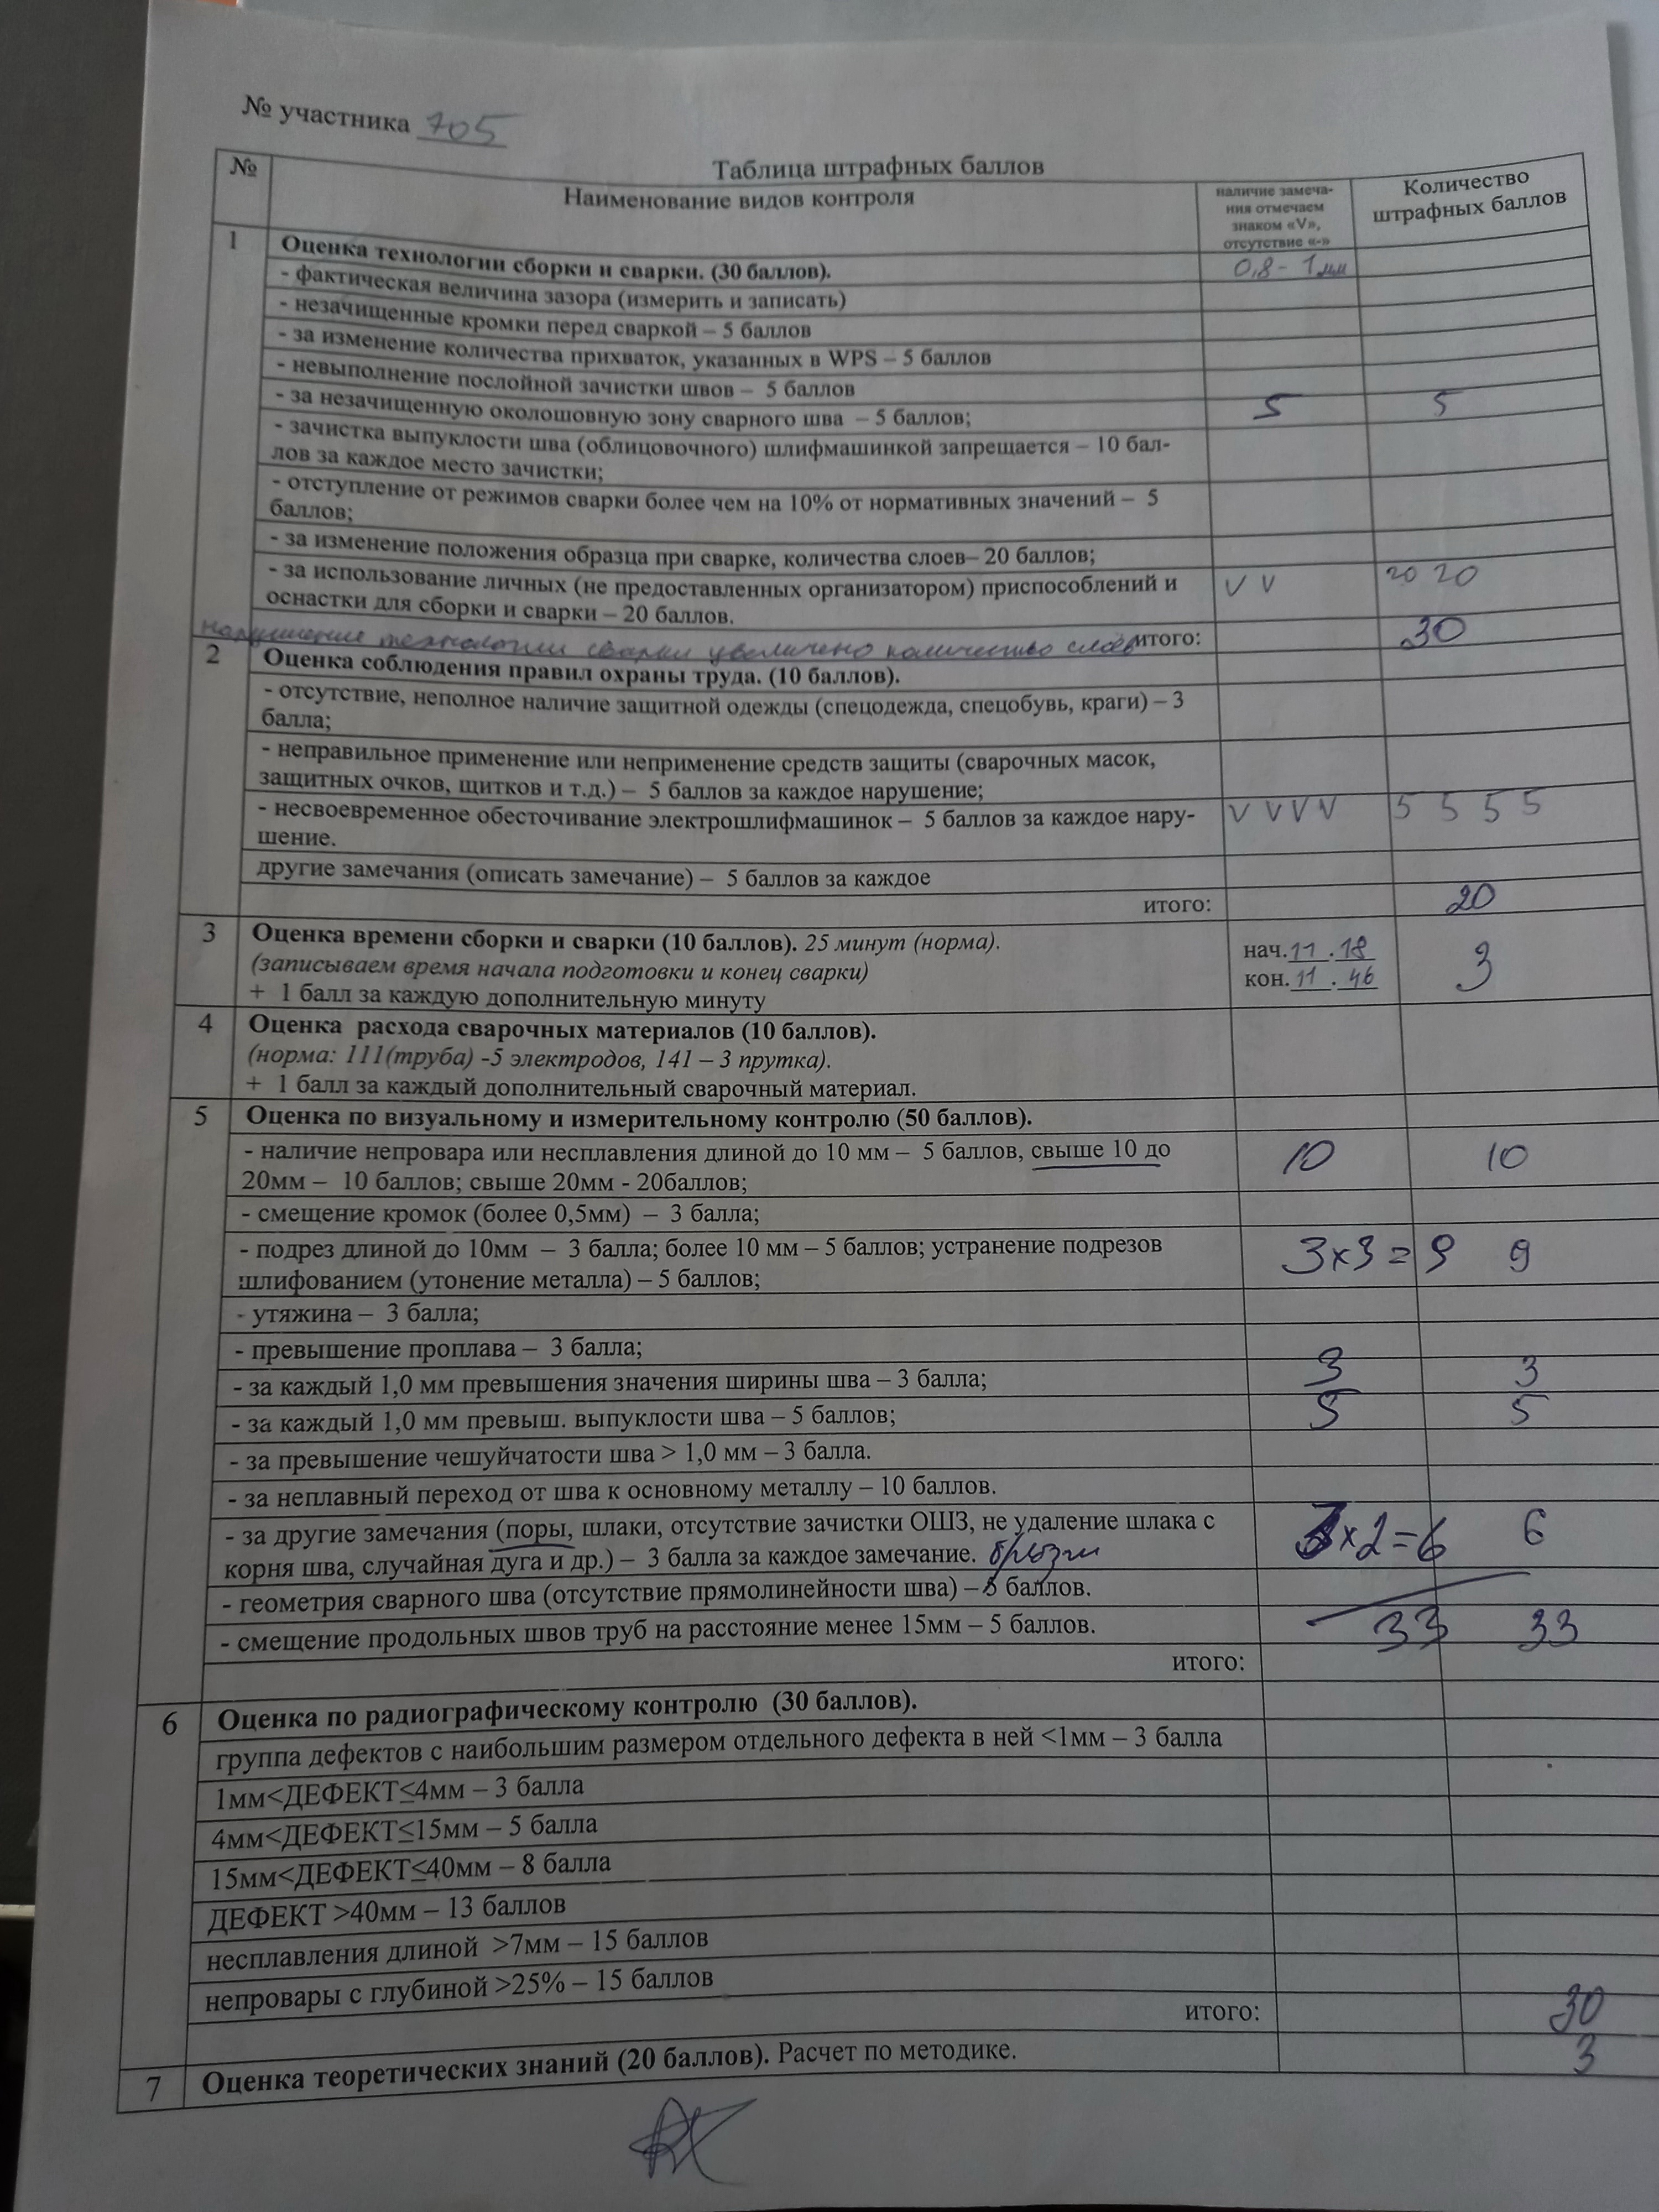 № участника 705
Таблица штрафных баллов
№
Наименование видов контроля
наличие замеча-
ния отмечаем
знаком «V»,
отсутствие «-»
Количество
штрафных баллов
1
Оценка технологии сборки и сварки. (30 баллов).
- фактическая величина зазора (измерить и записать)
0,8 - 1мм
- незачищенные кромки перед сваркой – 5 баллов
- за изменение количества прихваток, указанных в WPS – 5 баллов
- невыполнение послойной зачистки швов – 5 баллов
- за незачищенную околошовную зону сварного шва – 5 баллов;
5 5
- зачистка выпуклости шва (облицовочного) шлифмашинкой запрещается – 10 бал-
лов за каждое место зачистки;
- отступление от режимов сварки более чем на 10% от нормативных значений – 5
баллов;
- за изменение положения образца при сварке, количества слоев– 20 баллов;
- за использование личных (не предоставленных организатором) приспособлений и
оснастки для сборки и сварки – 20 баллов.
V V 20 20
нарушение технологии сварки увеличено количество слоёв
итого: 30
2
Оценка соблюдения правил охраны труда. (10 баллов).
- отсутствие, неполное наличие защитной одежды (спецодежда, спецобувь, краги) – 3
балла;
- неправильное применение или неприменение средств защиты (сварочных масок,
защитных очков, щитков и т.д.) – 5 баллов за каждое нарушение;
- несвоевременное обесточивание электрошлифмашинок – 5 баллов за каждое нару-
шение.
V V V V 5 5 5 5
другие замечания (описать замечание) – 5 баллов за каждое
итого: 20
3
Оценка времени сборки и сварки (10 баллов). 25 минут (норма).
(записываем время начала подготовки и конец сварки)
+ 1 балл за каждую дополнительную минуту
нач. 11 . 18
кон. 11 . 46
3
4
Оценка расхода сварочных материалов (10 баллов).
(норма: 111(труба) -5 электродов, 141 – 3 прутка).
+ 1 балл за каждый дополнительный сварочный материал.
5
Оценка по визуальному и измерительному контролю (50 баллов).
- наличие непровара или несплавления длиной до 10 мм – 5 баллов, свыше 10 до
20мм – 10 баллов; свыше 20мм - 20баллов;
10 10
- смещение кромок (более 0,5мм) – 3 балла;
- подрез длиной до 10мм – 3 балла; более 10 мм – 5 баллов; устранение подрезов
шлифованием (утонение металла) – 5 баллов;
3x3=9 9
- утяжина – 3 балла;
- превышение проплава – 3 балла;
- за каждый 1,0 мм превышения значения ширины шва – 3 балла;
3 3
- за каждый 1,0 мм превыш. выпуклости шва – 5 баллов;
5 5
- за превышение чешуйчатости шва > 1,0 мм – 3 балла.
- за неплавный переход от шва к основному металлу – 10 баллов.
- за другие замечания (поры, шлаки, отсутствие зачистки ОШЗ, не удаление шлака с
корня шва, случайная дуга и др.) – 3 балла за каждое замечание. брызги
3x2=6 6
- геометрия сварного шва (отсутствие прямолинейности шва) – 5 баллов.
- смещение продольных швов труб на расстояние менее 15мм – 5 баллов.
33 33
итого:
6
Оценка по радиографическому контролю (30 баллов).
группа дефектов с наибольшим размером отдельного дефекта в ней <1мм – 3 балла
1мм<ДЕФЕКТ≤4мм – 3 балла
4мм<ДЕФЕКТ≤15мм – 5 балла
15мм<ДЕФЕКТ≤40мм – 8 балла
ДЕФЕКТ >40мм – 13 баллов
несплавления длиной >7мм – 15 баллов
непровары с глубиной >25% – 15 баллов
итого: 30
7
Оценка теоретических знаний (20 баллов). Расчет по методике.
3